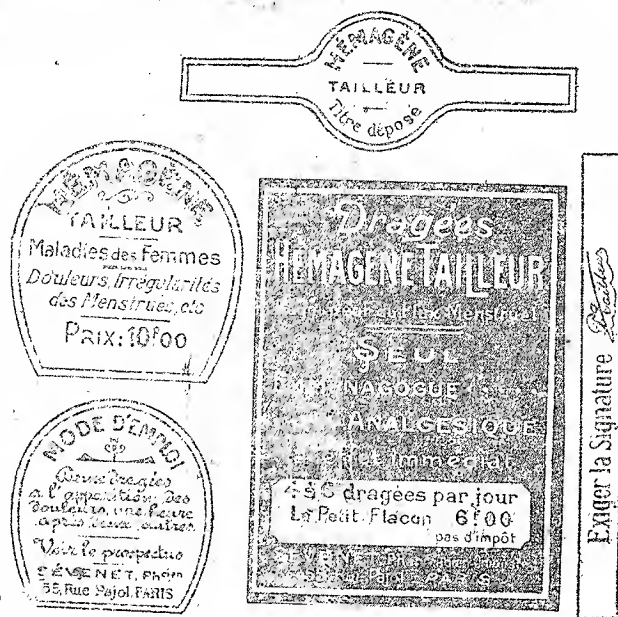 HÉMAGÈNE
TAILLEUR
Titre déposé
HÉMAGÈNE
TAILLEUR
Maladies des Femmes
Douleurs, Irrégularités
des Menstrues, etc
PRIX: 10f00
MODE D'EMPLOI
Deux dragées
à l'apparition des
douleurs, une heure
après deux autres
Voir le prospectus
SÉVENET, Phcien
55, Rue Pajol, PARIS
Dragées
HÉMAGÈNE TAILLEUR
Menstruel
SEUL
ANALGÉSIQUE
Immédiat
4 à 6 dragées par jour
Le Petit Flacon 6f00
pas d'impôt
PARIS
Exiger la Signature